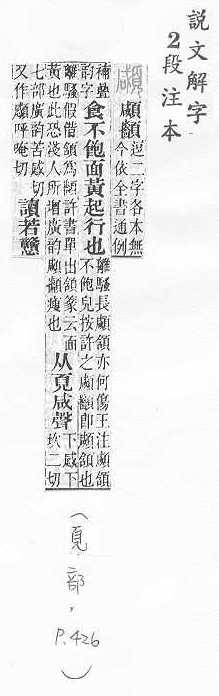 説文解字
2段注本
顑
顑顲逗二字各本無
今依全書通例
補疊
韵字
食不飽面黃起行也
離騷長顑頷亦何傷王注顑頷
不飽皃按許之顑顲即顑頷也
離騷假借頷爲顲許書單出頷篆云面
黃也此恐淺人所增廣韵顑顲瘦也
从頁咸聲
下感下
坎二切
七部廣韵苦感切
又作顑呼唵切
讀若戇
（頁部，P.426）